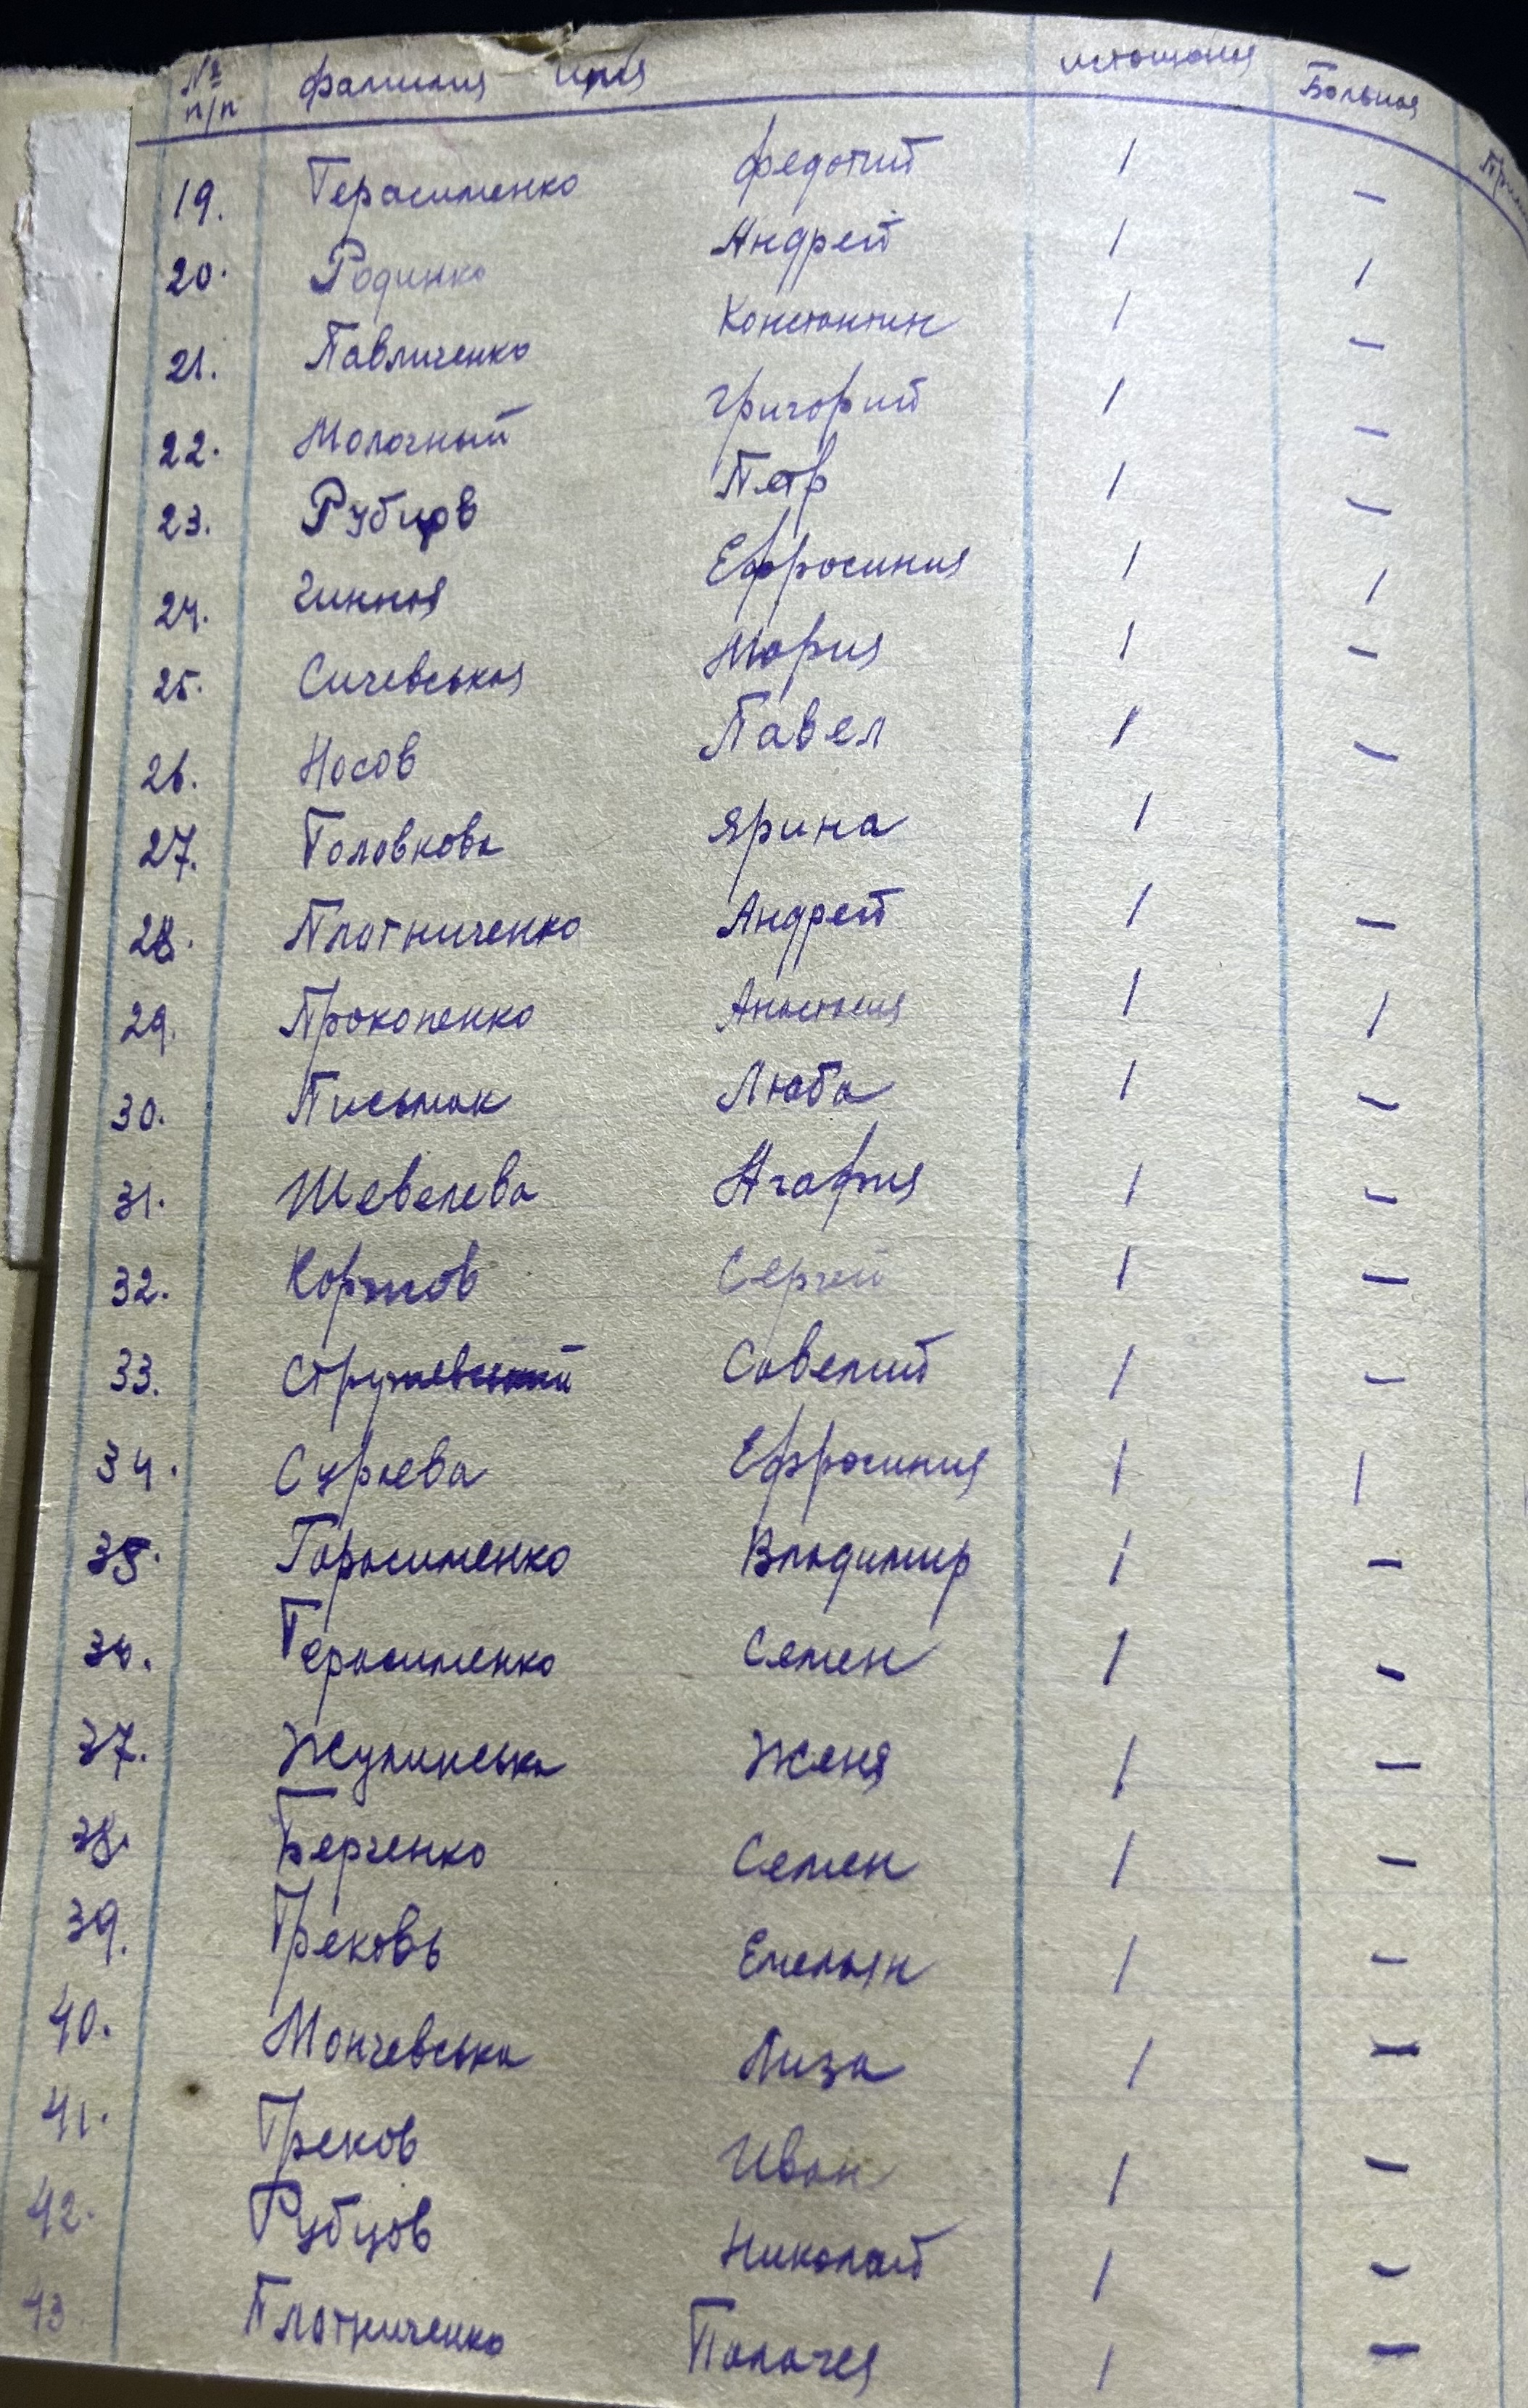 № п/п фамилия имя истощения Больная Прим
19. Герасименко Федотий 1 —
20. Родинко Андрей 1 1
21. Павличенко Константин 1 —
22. Молочный Григорий 1 —
23. Рубцов Петр 1 —
24. Чинная Ефросиния 1 1
25. Сичевськая Мария 1 —
26. Носов Павел 1 —
27. Головкова Ярина 1
28. Плотниченко Андрей 1 —
29. Прокопенко Анастасия 1 1
30. Письмак Люба 1 —
31. Шевелева Агафия 1 —
32. Коржов Сергей 1 —
33. Савелий 1 —
34. Сурьева Ефросиния 1 1
35. Гарасименко Владимир 1 —
36. Герасименко Семен 1 —
37. Жулинська Женя 1 —
38. Берченко Семен 1 —
39. Грековь Емельян 1 —
40. Мончевська Лиза 1 —
41. Греков Иван 1 —
42. Рубцов Николай 1 —
43 Плотниченко Палагея 1 —